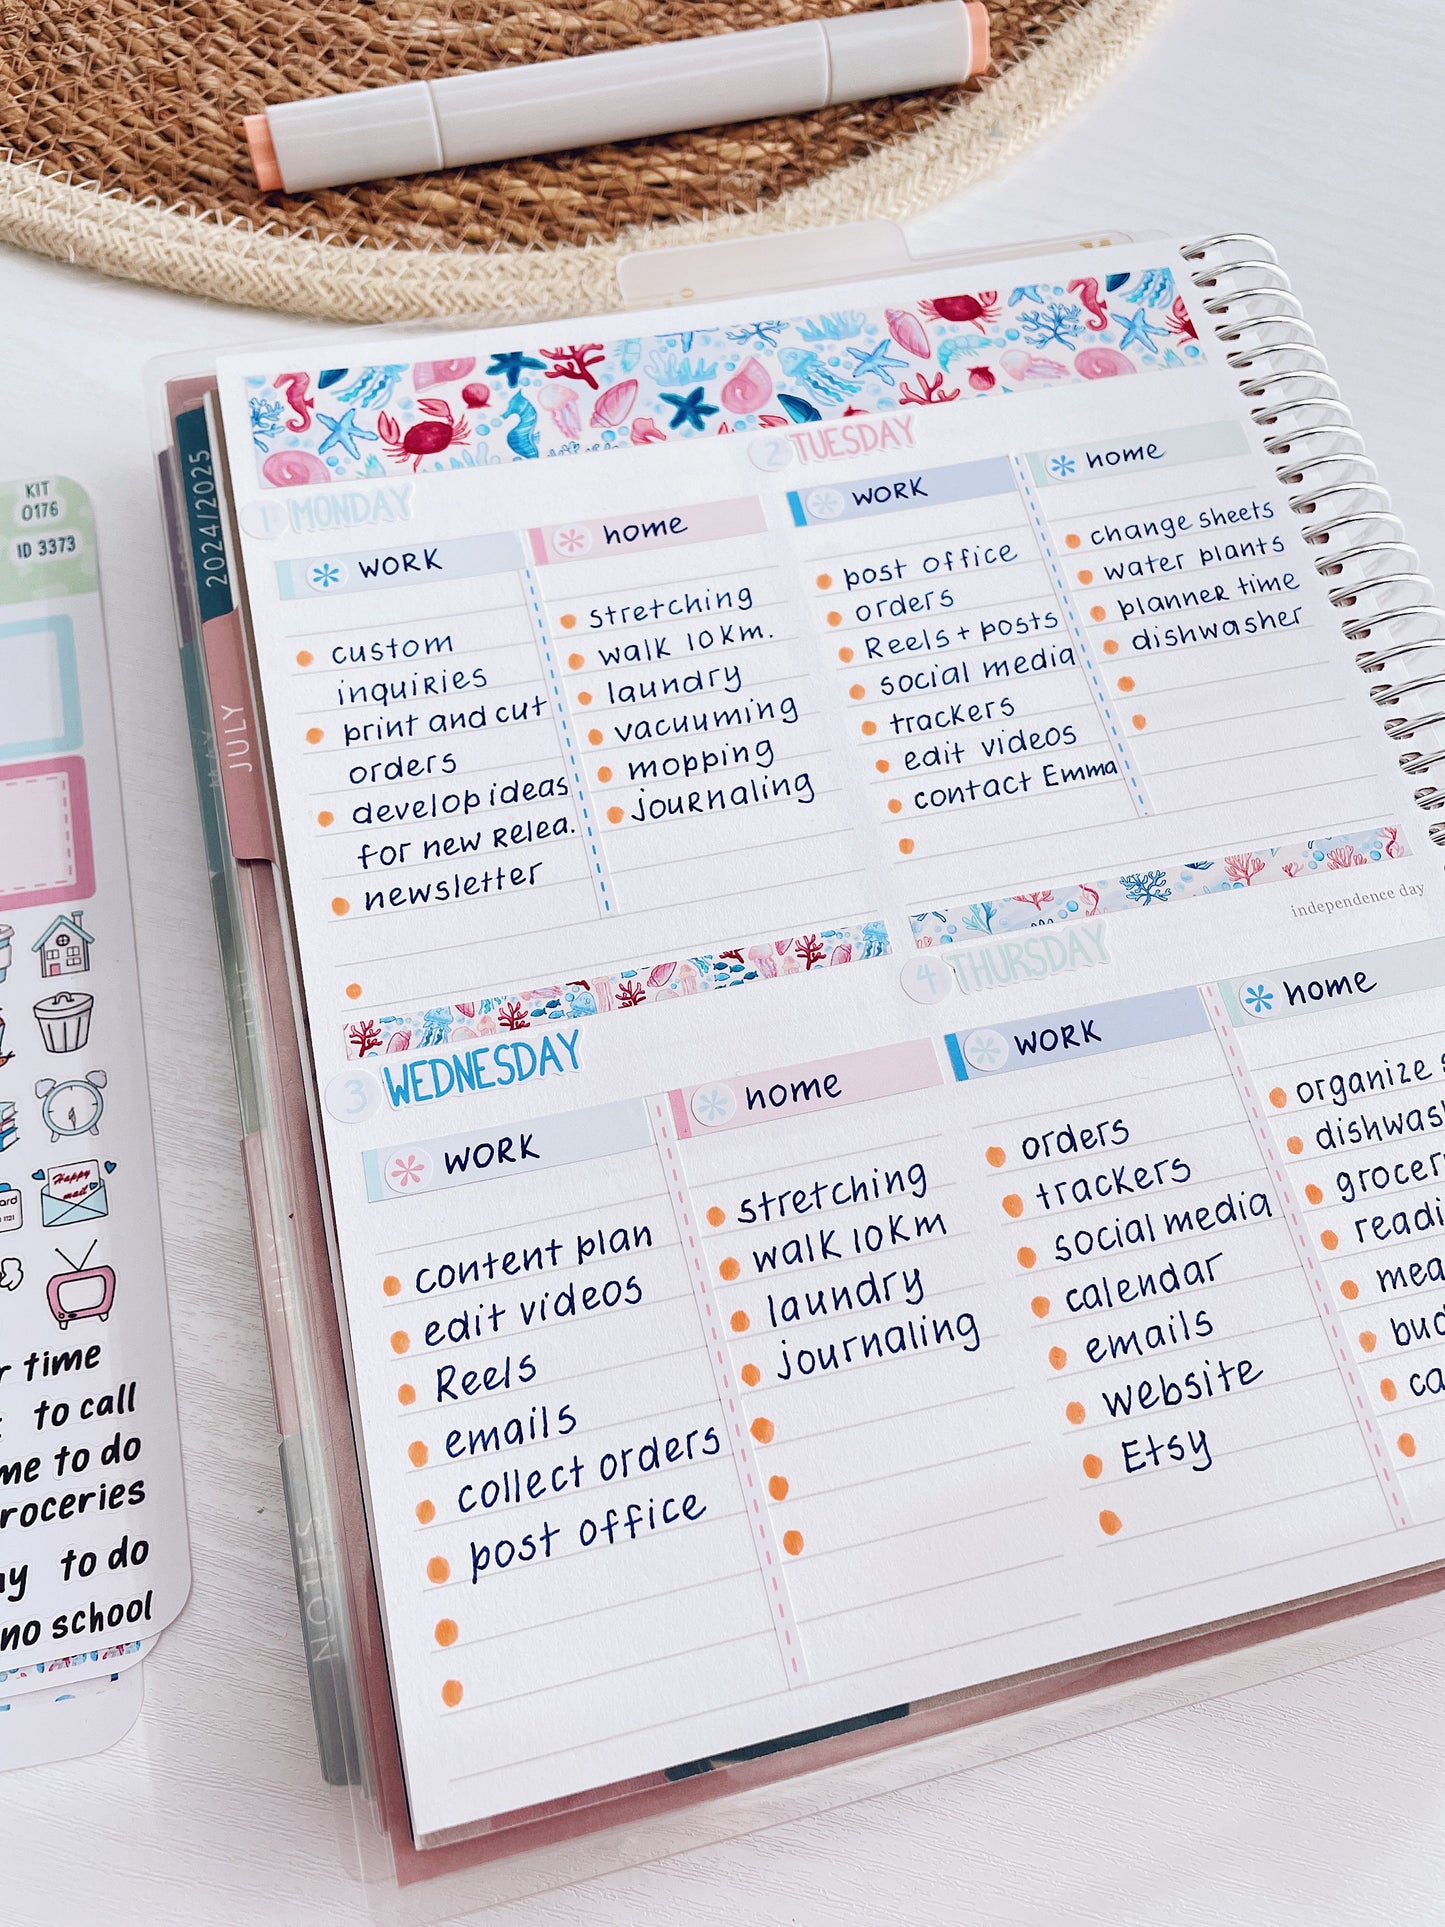 KIT
0176
ID 3373
2024/2025
JULY
NOTES
1 MONDAY
WORK
custom
inquiries
print and cut
orders
develop ideas
for new Relea.
newsletter
home
stretching
walk 10km.
laundry
vacuuming
mopping
journaling
2 TUESDAY
WORK
post office
orders
Reels + posts
social media
trackers
edit videos
contact Emma
home
change sheets
water plants
planner time
dishwasher
3 WEDNESDAY
WORK
content plan
edit videos
Reels
emails
collect orders
post office
home
stretching
walk 10km
laundry
journaling
independence day
4 THURSDAY
WORK
orders
trackers
social media
calendar
emails
website
Etsy
home
organize
Happy
mail
time
to call
to do
to do
no school